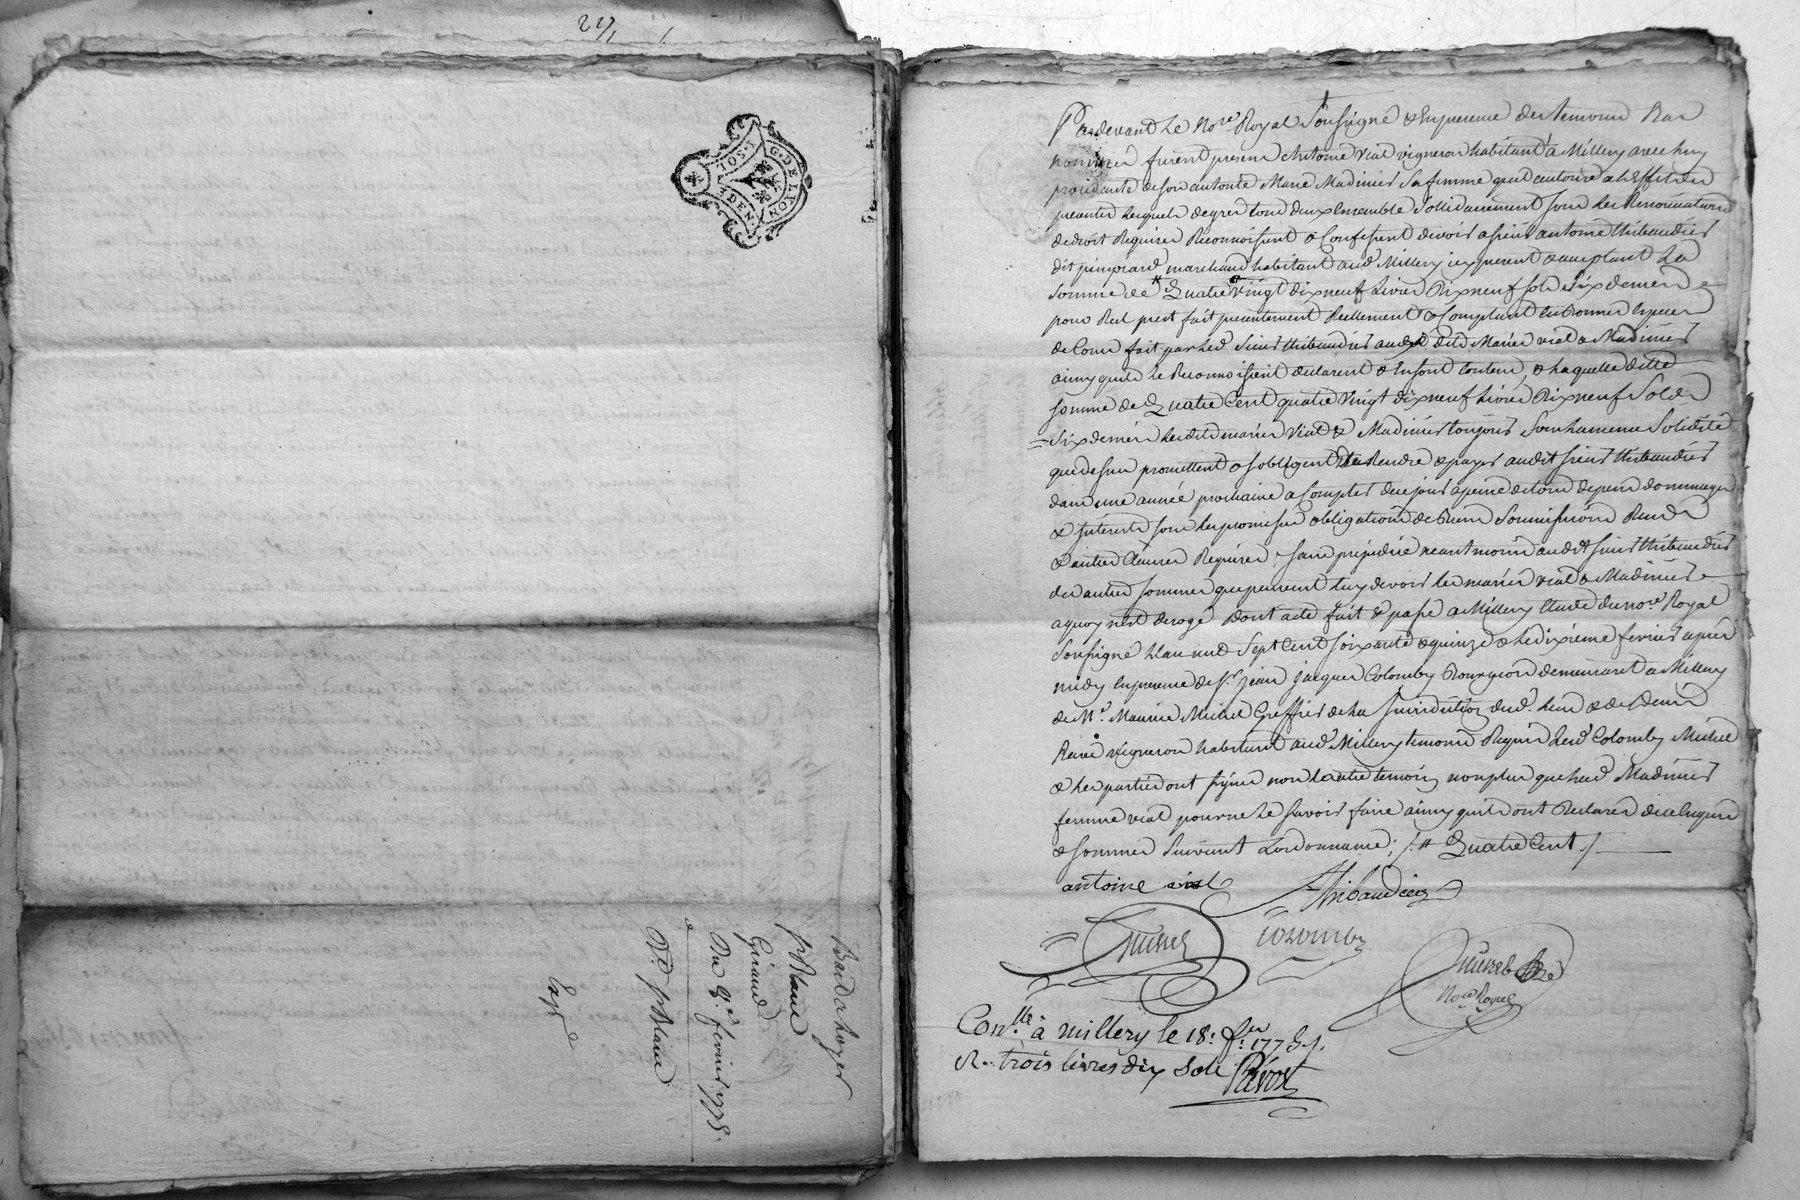 27/1
G. DE LYON
HOS. J. DEN
Bail a loyer
pr Blanc
Giraud
Du 9e fevrier 1775.
Dt. pr Blanc
Expé
Pardevant Le nore Royal Soussigné & En presence des temoins Bas
nommés furent presens Antoine Vial vigneron habitant à Millery avec luy
procédante de son autorité Marie Madinier Sa femme quil autorise a l'Effet des
presentes Lesquels de gré tous deux Ensemble Sollidairement sous Les Renonciations
de droit Requises Reconnoissent & Confessent devoir a sieur antoine thibaudier
dit marchand habitant aud. Millery icy present & acceptant La
somme de # Quatre vingt dixneuf Livres Dixneuf sols Six deniers
pour Reel prest fait presentement Reellement & Comptant En Bonnes Especes
de Cours fait par Led. Sieur thibaudier auxd. dits Mariés vial & Madinier
ainsy quils Le Reconnoissent declarent & En sont Contens, & Laquelle ditte
somme de Quatre Cent quatre vingt dixneuf Livres Dixneuf Sols
Six deniers Lesdits mariés Vial & Madinier toujours Sous La meme Solidité
que dessus promettent & sobligent de Rendre & payer audit sieur thibaudier
dans une année prochaine a Compter de ce jour a peine de tous depens dommages
& Interets sous Les promesses obligations de Biens Soumissions Rends
& autres Clauses Requises. Sans prejudice neantmoins audit sieur thibaudier
des autres sommes que peuvent Luy devoir les mariés vial & Madinier
a quoy nest derogé Dont acte fait & passé a Millery Etude du nore Royal
Soussigné Lan mil Sept Cent soixante & quinze & Le dixieme fevrier après
midy En presence de Sr. jean jacques Colomby Bourgeois demeurant a Millery
de Me. Maurice Michel Greffier de La Jurisdiction dud. lieu & de Denis
vigneron habitant aud. Millery temoins Requis Lesd. Colomby Michel
& Les parties ont signé non Lautre temoin non plus que Lad. Madinier
femme vial pour ne Le Savoir faire ainsy quils ont Declaré de ce Enquis
& Sommés Suivant Lordonnance; /. # Quatre Cent ./.
antoine vial
Thibaudier
Michel
colomby
Nore Royal
Conlle à millery le 18: fer 1775 /.
R. trois livres dix sols
Prévost